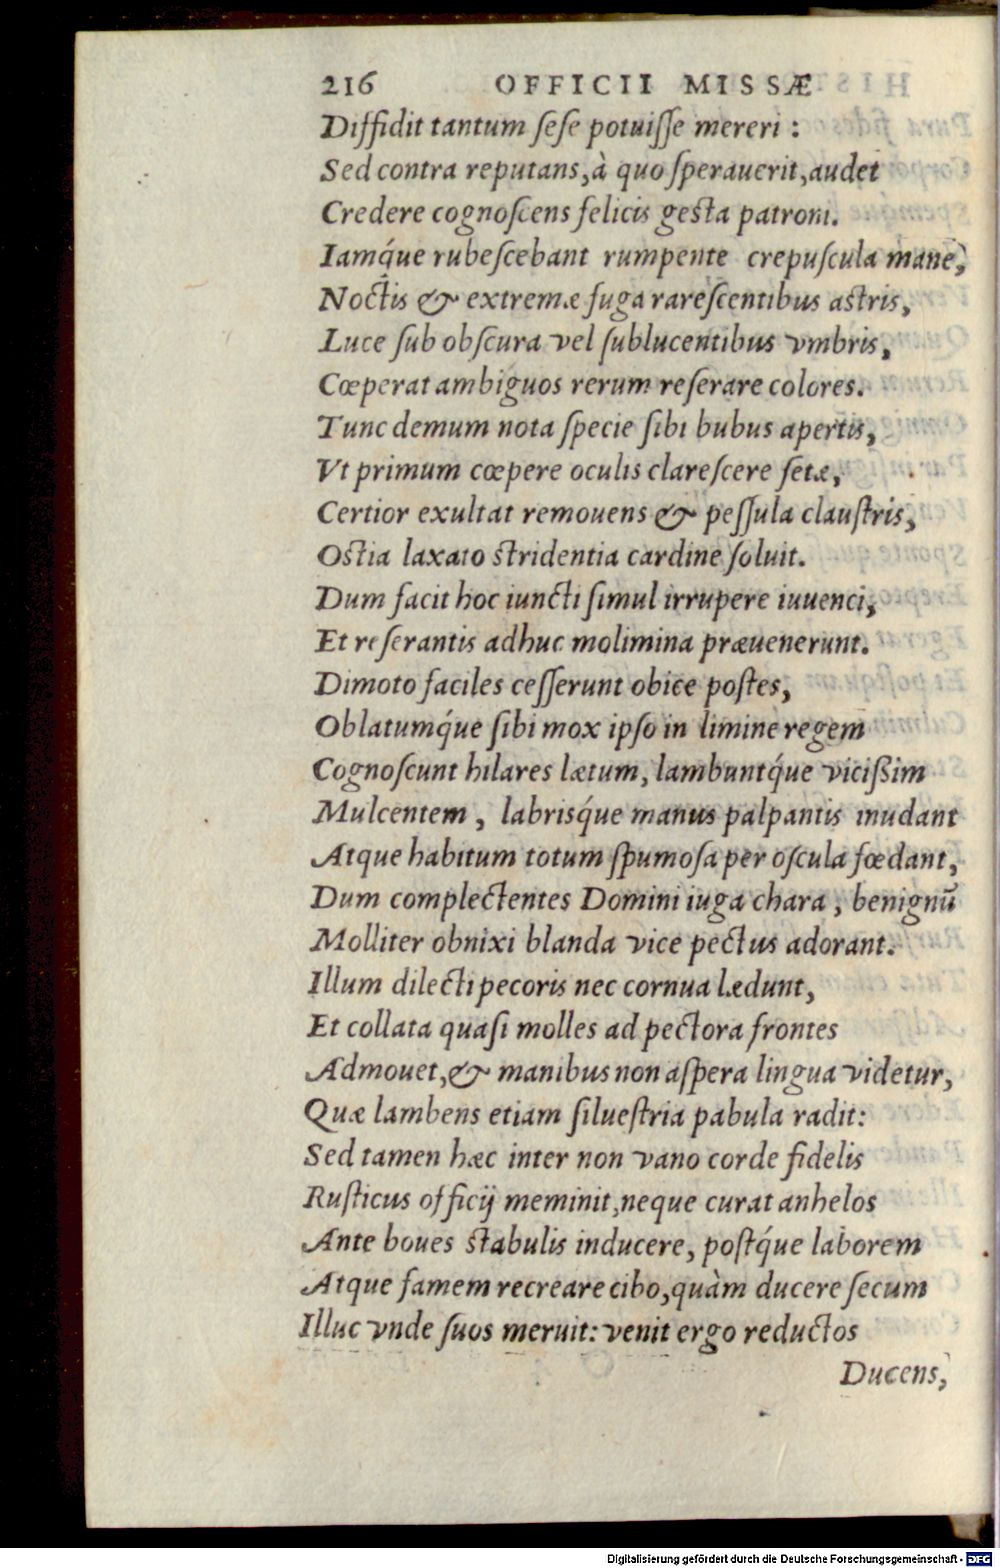 216 OFFICII MISSÆ
Diffidit tantum ſeſe potuiſſe mereri :
Sed contra reputans, à quo ſperauerit, audet
Credere cognoſcens felicis geſta patroni.
Iamq́ue rubeſcebant rumpente crepuſcula mane,
Noctis & extremæ fuga rareſcentibus aſtris,
Luce ſub obſcura vel ſublucentibus vmbris,
Cœperat ambiguos rerum reſerare colores.
Tunc demum nota ſpecie ſibi bubus apertis,
Vt primum cœpere oculis clareſcere ſetæ,
Certior exultat remouens & peſſula clauſtris,
Oſtia laxato ſtridentia cardine ſoluit.
Dum facit hoc iuncti ſimul irrupere iuuenci,
Et reſerantis adhuc molimina præuenerunt.
Dimoto faciles ceſſerunt obice poſtes,
Oblatumq́ue ſibi mox ipſo in limine regem
Cognoſcunt hilares lætum, lambuntq́ue vicißim
Mulcentem , labrisq́ue manus palpantis inudant
Atque habitum totum ſpumoſa per oſcula fœdant,
Dum complectentes Domini iuga chara , benignū
Molliter obnixi blanda vice pectus adorant.
Illum dilecti pecoris nec cornua lædunt,
Et collata quaſi molles ad pectora frontes
Admouet, & manibus non aſpera lingua videtur,
Quæ lambens etiam ſilueſtria pabula radit:
Sed tamen hæc inter non vano corde fidelis
Ruſticus officij meminit, neque curat anhelos
Ante boues ſtabulis inducere, poſtq́ue laborem
Atque famem recreare cibo, quàm ducere ſecum
Illuc vnde ſuos meruit: venit ergo reductos
Ducens,
Digitalisierung gefördert durch die Deutsche Forschungsgemeinschaft - DFG